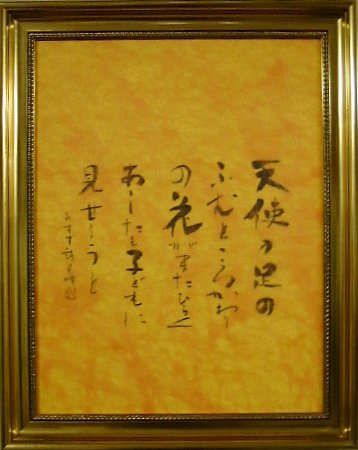 天使の足の
ふむところかわ
の花がまたひらく
あしたも子どもに
見せようと
みすゞ詩